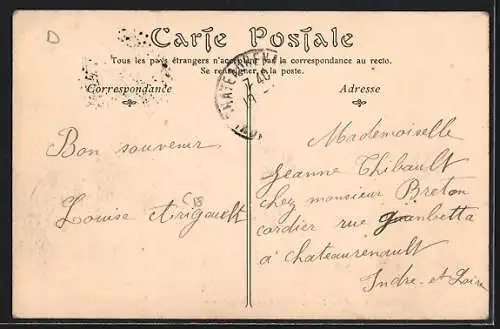 D
Carte Postale
Tous les pays étrangers n'acceptent pas la correspondance au recto.
Se renseigner à la poste.
Correspondance
Adresse
Bon souvenir
Louise
Mademoiselle
Jeanne Thibault
chez monsieur Breton
cordier rue gambetta
à chateaurenault
Indre-et-Loire